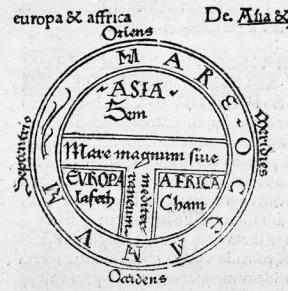 europa & affrica
De. Asia &
Oriens
MARE OCEANVM
Septentrio
Meridies
ASIA
Sem
Mare magnum siue
EVROPA
Iafeth
mediter
raneum
AFRICA
Cham
Occidens